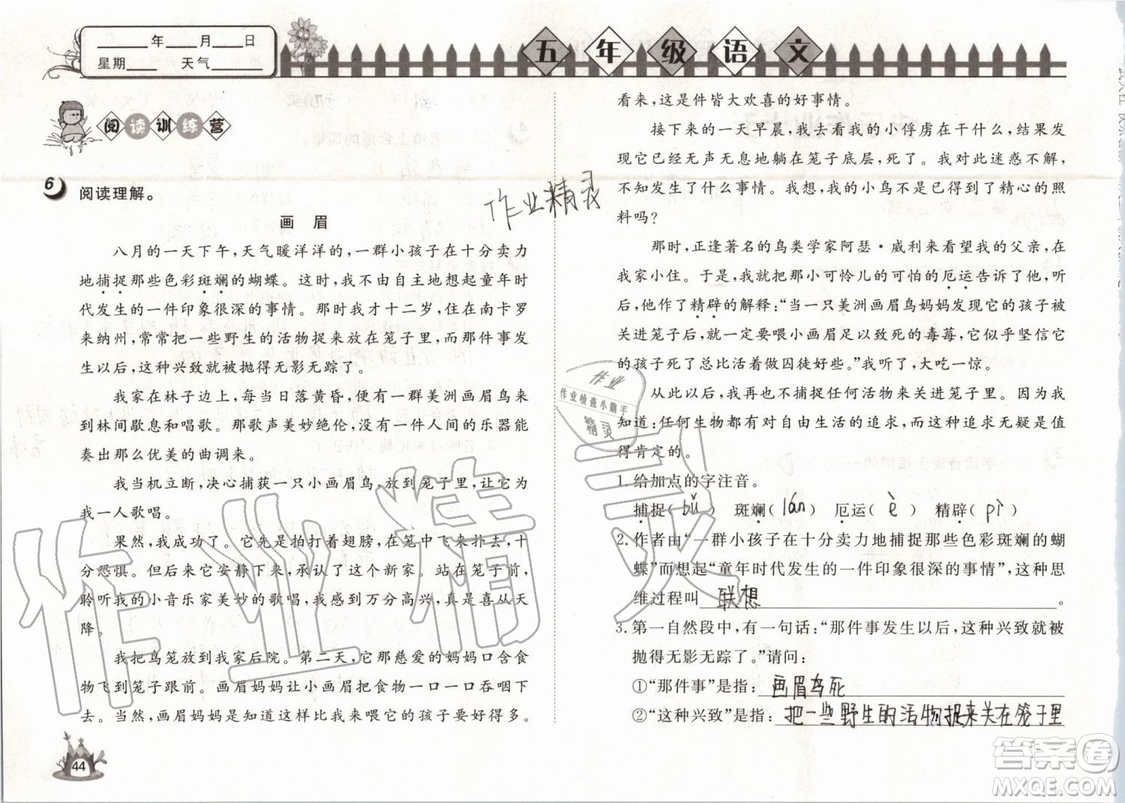 ____年__月__日
星期____ 天气____
五年级语文
阅读训练营
6 阅读理解。
画 眉
八月的一天下午，天气暖洋洋的，一群小孩子在十分卖力
地捕捉那些色彩斑斓的蝴蝶。这时，我不由自主地想起童年时
代发生的一件印象很深的事情。那时我才十二岁，住在南卡罗
来纳州，常常把一些野生的活物捉来放在笼子里，而那件事发
生以后，这种兴致就被抛得无影无踪了。
我家在林子边上，每当日落黄昏，便有一群美洲画眉鸟来
到林间歇息和唱歌。那歌声美妙绝伦，没有一件人间的乐器能
奏出那么优美的曲调来。
我当机立断，决心捕获一只小画眉，放到笼子里，让它为我
一人歌唱。
果然，我成功了。它先是拍打着翅膀，在笼中飞来扑去，十
分恐惧。但后来它安静下来，承认了这个新家。站在笼子前，
聆听我的小音乐家美妙的歌唱，我感到万分高兴，真是喜从天
降。
我把鸟笼放到我家后院。第二天，它那慈爱的妈妈口含食
物飞到了笼子跟前。画眉妈妈让小画眉把食物一口一口吞咽
下去。当然，画眉妈妈是知道这样比我来喂它的孩子要好得多。
看来，这是件皆大欢喜的好事情。
接下来的一天早晨，我去看我的小俘虏在干什么，结果发
现它已经无声无息地躺在笼子底层，死了。我对此迷惑不解，
不知发生了什么事情。我想，我的小鸟不是已得到了精心的照
料吗？
那时，正逢著名的鸟类学家阿瑟·威利来看望我的父亲，在
我家小住。于是，我就把那小可怜儿的可怕的厄运告诉了他，听
后，他作了精辟的解释：“当一只美洲画眉鸟妈妈发现它的孩子被
关进笼子后，就一定要喂小画眉足以致死的毒莓，它似乎坚信它
的孩子死了总比活着做囚徒好些。”我听了，大吃一惊。
从此以后，我再也不捕捉任何活物来关进笼子里。直到现
在，我都知道：任何生物都有对自由生活的追求，而这种追求无疑是值
得肯定的。
1. 给加点的字注音。
捕捉（bǔ） 斑斓（lán） 厄运（è） 精辟（pì）
2. 作者由“一群小孩子在十分卖力地捕捉那些色彩斑斓的蝴
蝶”而想起“童年时代发生的一件印象很深的事情”，这种思
维过程叫 联想 。
3. 第一自然段中，有一句话：“那件事发生以后，这种兴致就被
抛得无影无踪了。”请问：
①“那件事”是指：画眉鸟死
②“这种兴致”是指：把一些野生的活物捉来关在笼子里
44
作业精灵
作业精灵
作业
作业检查小助手
精灵
答案圈
MXQE.COM